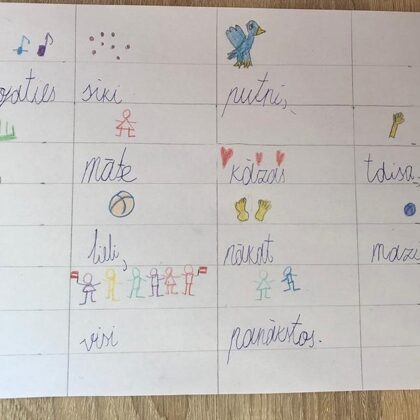 ojaties siki putni,
māte kāzas taisa.
lieli, nākat mazi
visi panākstos.